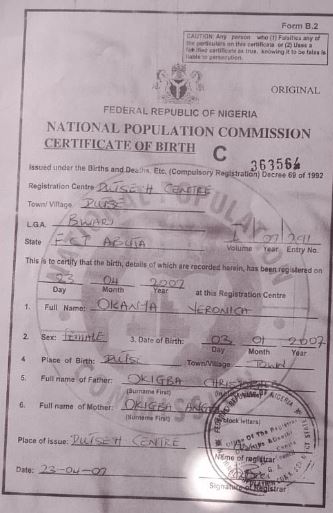 Form B.2
CAUTION: Any person who (1) Falsifies any of
the particulars on this certificate or (2) Uses a
falsified certificate as true, knowing it to be false is
liable to persecution.
ORIGINAL
FEDERAL REPUBLIC OF NIGERIA
NATIONAL POPULATION COMMISSION
CERTIFICATE OF BIRTH
C 363564
Issued under the Births and Deaths, Etc. (Compulsory Registration) Decree 69 of 1992
Registration Centre CENTRE
Town/ Village
L.G.A. BWARI
State F.C.T ABUJA
1 07 291
Volume Year Entry No.
This is to certify that the birth, details of which are recorded herein, has been registered on
23 04 2007
Day Month Year at this Registration Centre
1. Full Name: VERONICA
2. Sex: FEMALE 3. Date of Birth: 03 01 2007
Day Month Year
4 Place of Birth: Town/Village TOWN
5. Full name of Father: OKIGBA
(Surname First)
6. Full name of Mother: OKIGBA
(Surname First) (block letters)
Place of Issue: CENTRE
Name of registrar
Date: 23-04-07
Signature of Registrar